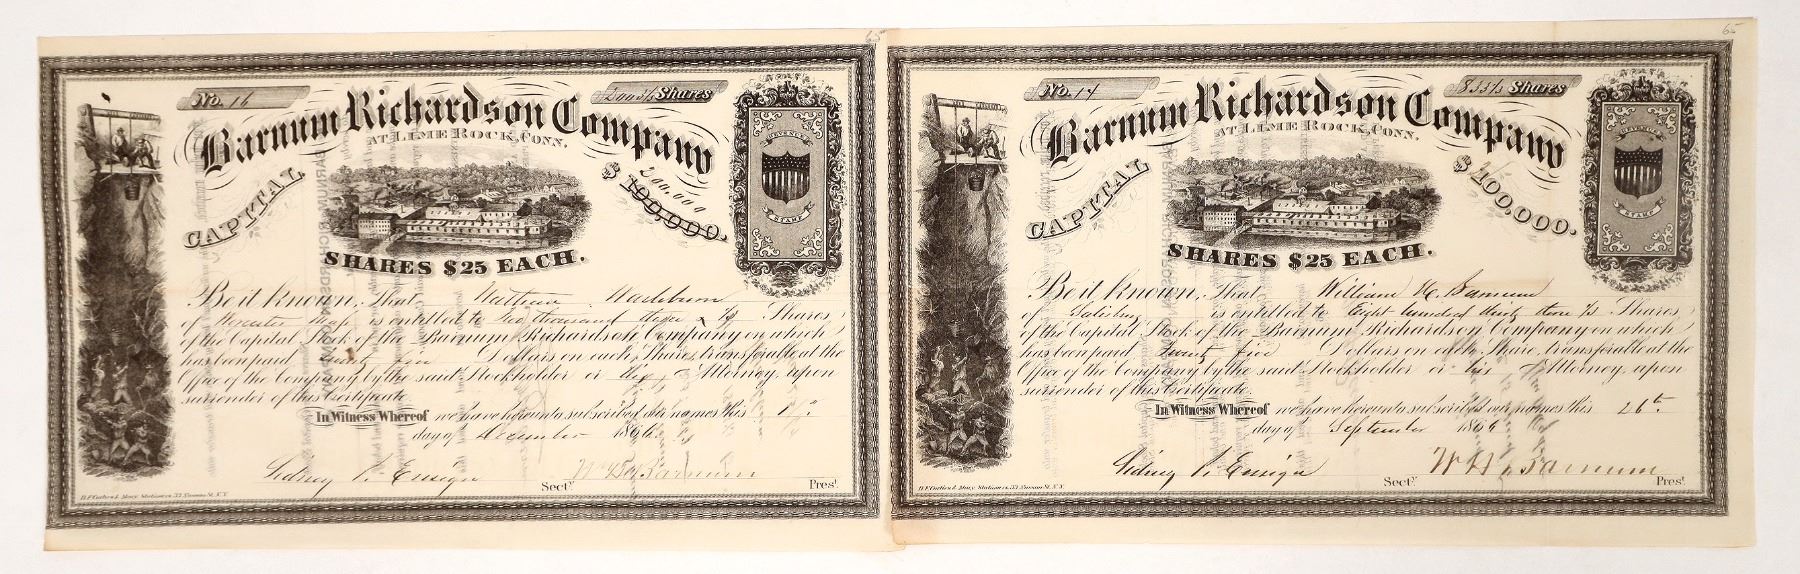 65
No. 16
Shares
Barnum Richardson Company
AT LIME ROCK, CONN.
CAPITAL
200,000
$ 100,000.
REVENUE
STAMP
SHARES $25 EACH.
Be it known, That Nathan Washburn
of Worcester Mass is entitled to Two thousand Shares
of the Capital Stock of the Barnum Richardson Company on which
has been paid Twenty five Dollars on each Share, transferable at the
Office of the Company by the said Stockholder or his Attorney, upon
surrender of this Certificate.
In Witness Whereof we have hereunto subscribed our names this
day of December 1866.
Sidney P. Ensign Secty. Wm H. Barnum Prest.
65
No. 14
833 1/3 Shares
Barnum Richardson Company
AT LIME ROCK, CONN.
CAPITAL
$ 100,000.
REVENUE
STAMP
SHARES $25 EACH.
Be it known, That William H. Barnum
of Salisbury is entitled to Eight hundred thirty three 1/3 Shares
of the Capital Stock of the Barnum Richardson Company on which
has been paid Twenty five Dollars on each Share, transferable at the
Office of the Company by the said Stockholder or his Attorney, upon
surrender of this Certificate.
In Witness Whereof we have hereunto subscribed our names this 26th
day of September 1866
Sidney P. Ensign Secty. W H Barnum Prest.